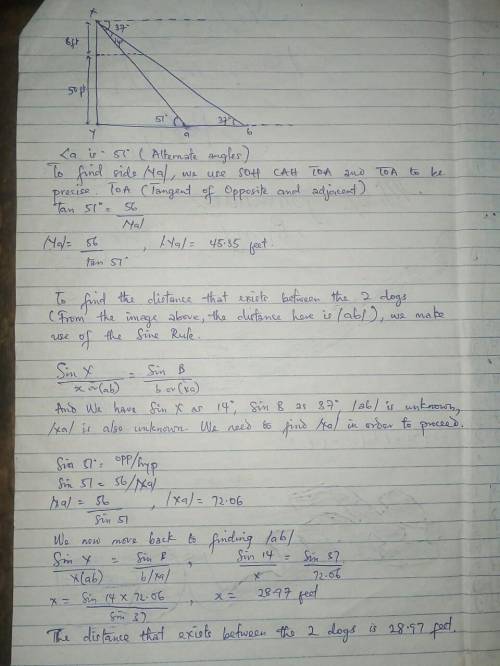 X
37°
14°
6ft
50ft
51°
37°
Y
a
b
<a is 51° (Alternate angles)
To find side /Ya/, we use SOH CAH TOA and TOA to be
precise. TOA (Tangent of Opposite and adjacent)
Tan 51° = 56
/Ya/
/Ya/ = 56 , /Ya/ = 45.35 feet.
tan 51°
To find the distance that exists between the 2 dogs
(From the image above, the distance here is /ab/), we make
use of the Sine Rule.
Sin X = Sin B
x or (ab) b or (xa)
And We have Sin X as 14°, Sin B as 37° /ab/ is unknown,
/xa/ is also unknown. We need to find /xa/ in order to proceed.
Sin 51° = opp/hyp
Sin 51 = 56/xa/
/xa/ = 56 , /xa/ = 72.06
Sin 51
We now move back to finding /ab/
Sin X = Sin B , Sin 14 = Sin 37
x(ab) b/xa/ x 72.06
x = Sin 14 x 72.06 , x = 28.97 feet
Sin 37
The distance that exists between the 2 dogs is 28.97 feet.